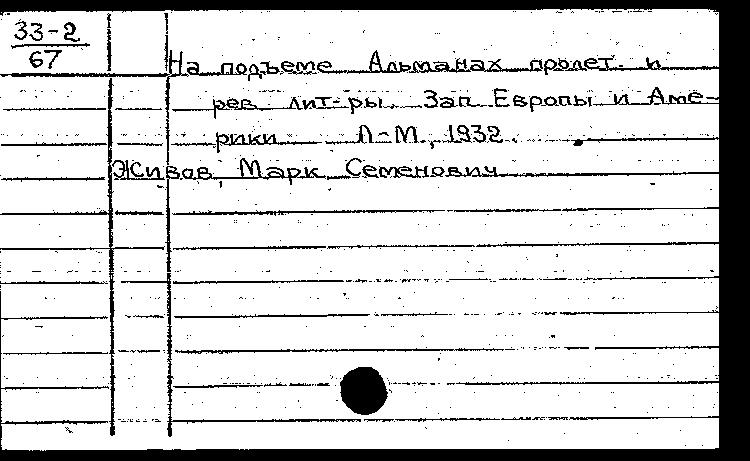 33-2
67
На подъеме Альманах пролет. и
рев. лит-ры. Зап. Европы и Аме-
рики Л-М., 1932.
Живов, Марк Семенович